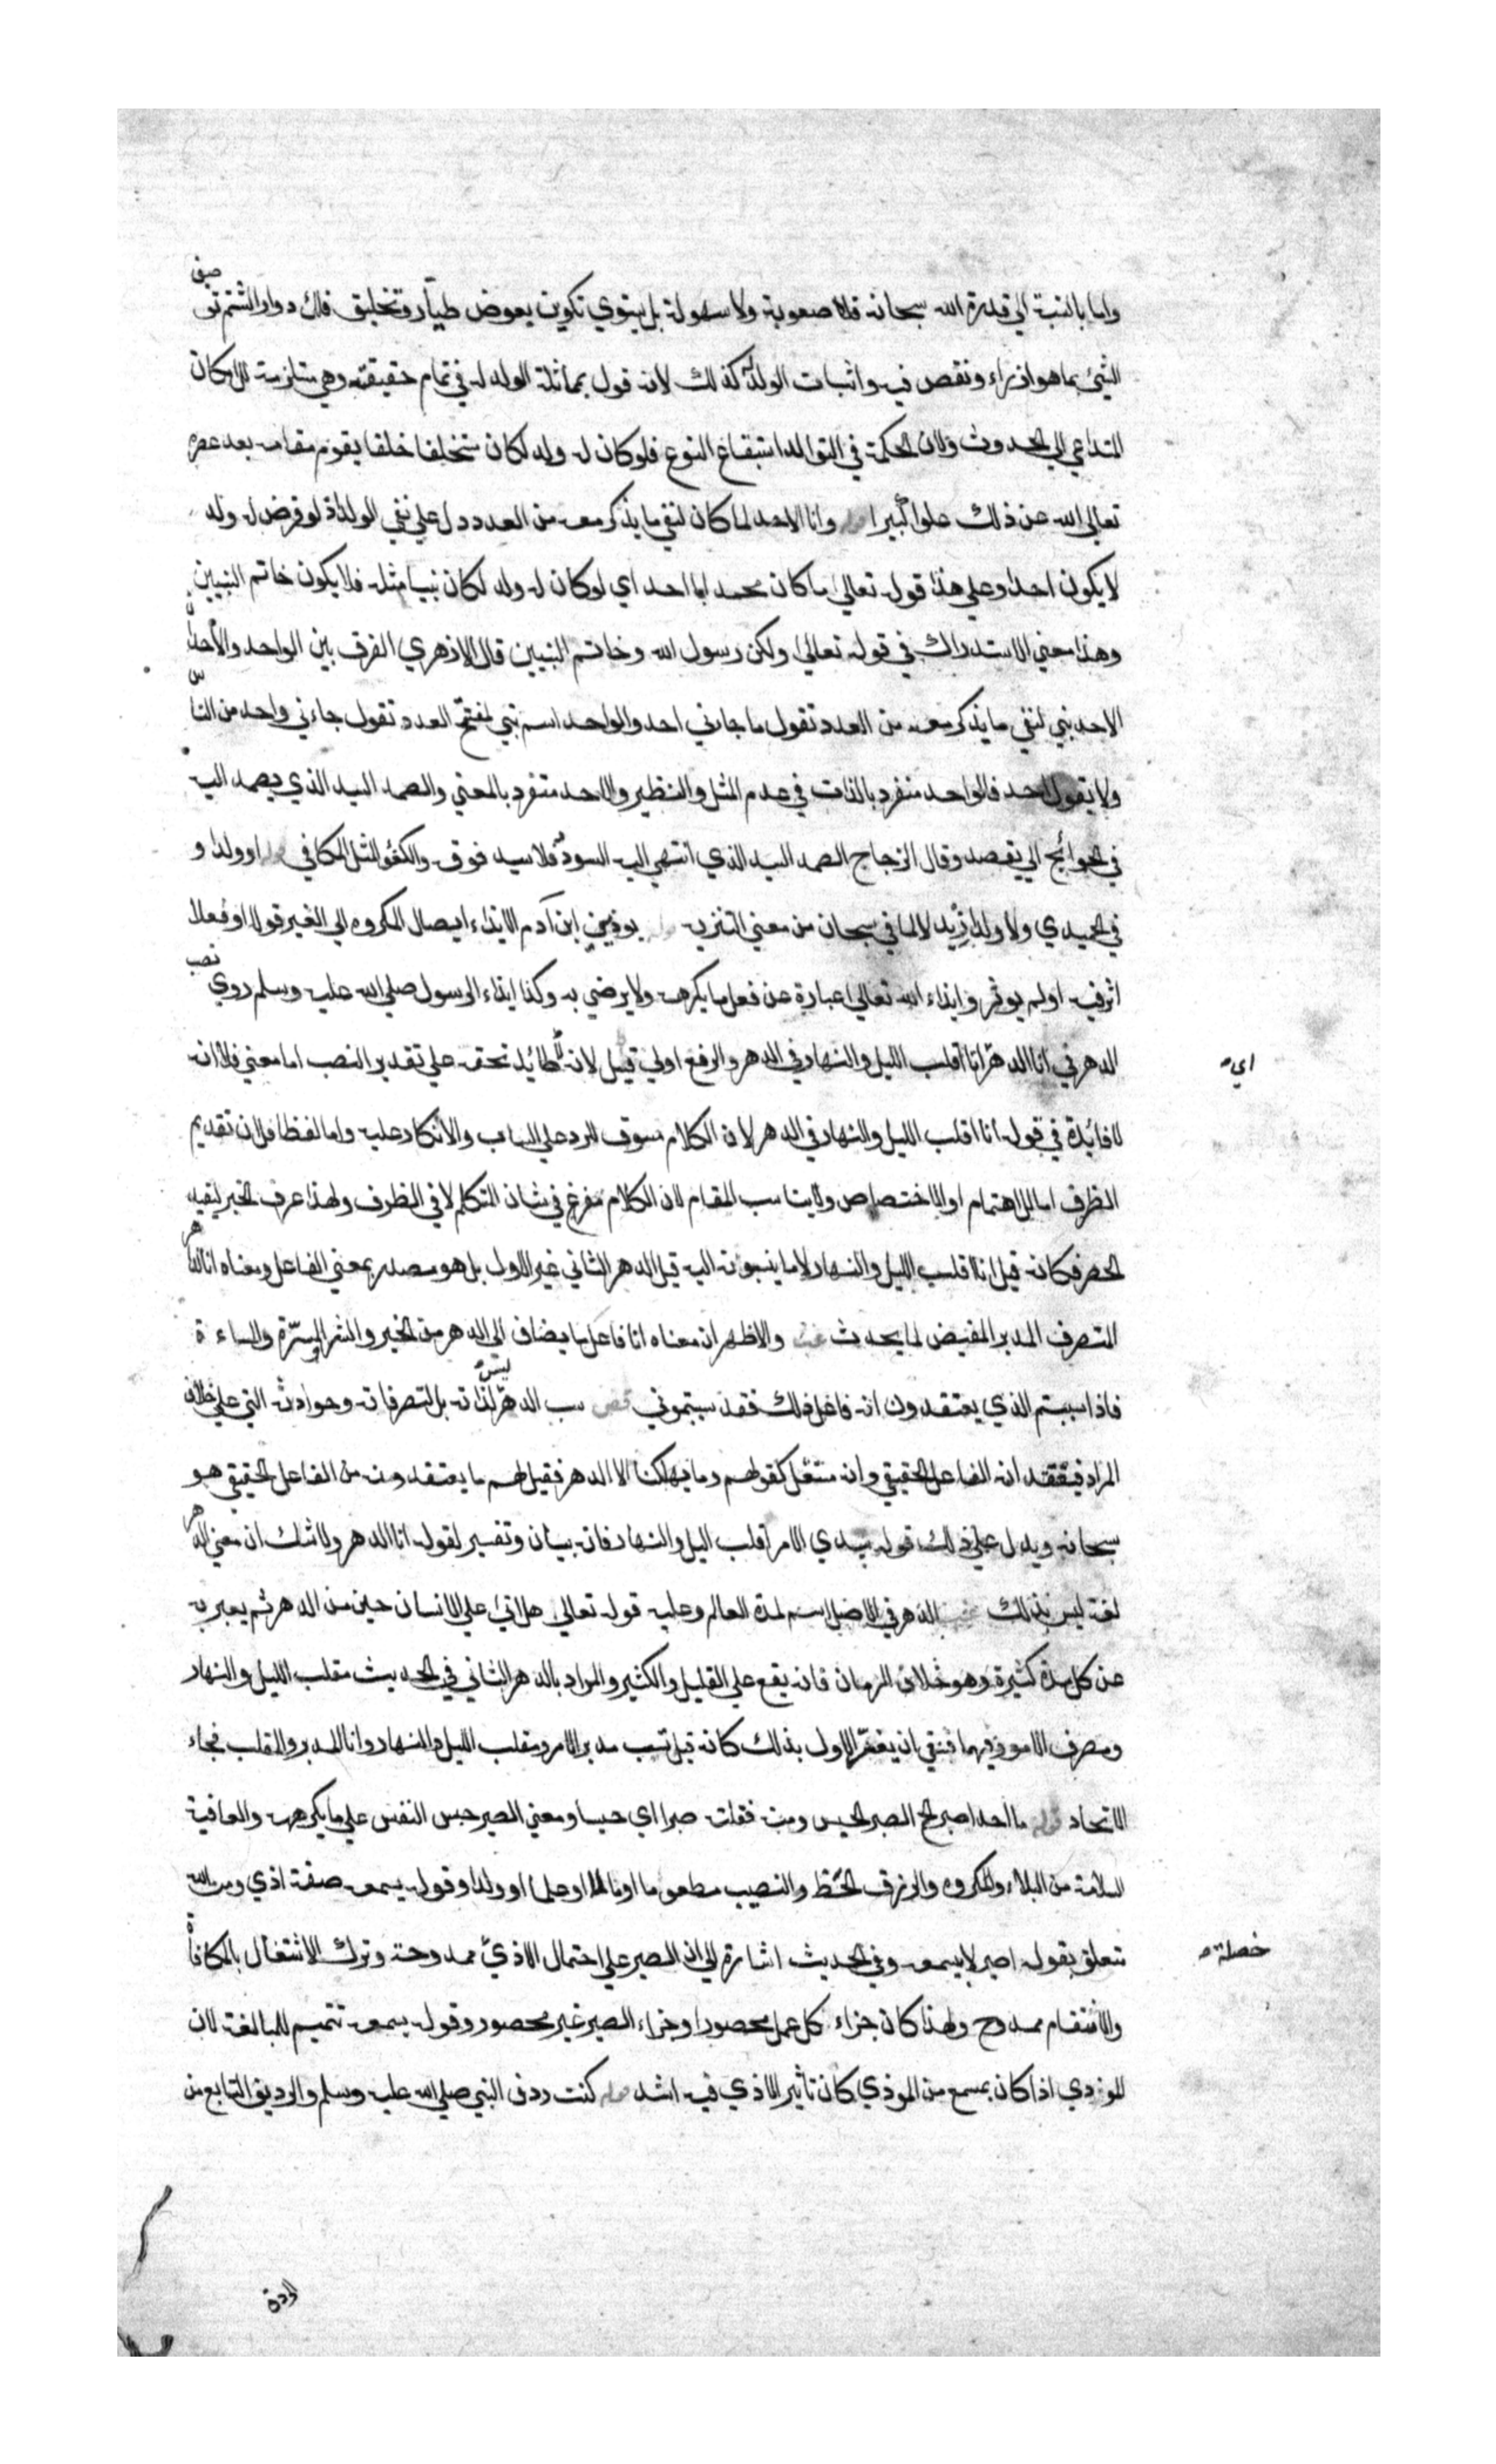 واما بالنسبة الي قدرة الله سبحانه فلا صعوبة ولا سهولة بل يستوي تكوين بعوض طيار وتخليق فلك دوار الشتم توصيف
الشيء بما هو ازراء ونقص فيه واثبات الولد له كذلك لانه قول بمماثلة الولد له في تمام حقيقته وهي مستلزمة للامكان
المتداعي الي الحدوث ولان الحكمة في التوالد استبقاء النوع فلو كان له ولد لكان مستخلفا خلفا يقوم مقامه بعد عصره
تعالي الله عن ذلك علوا كبيرا قوله وانا الاحد لما كان لنفي ما يذكر معه من العدد دل علي نفي الولد اذ لو فرض له ولد
لا يكون احدا وعلي هذا قوله تعالي ما كان محمد ابا احد اي لو كان له ولد لكان نبيا مثله فلا يكون خاتم النبيين
وهذا معني الاستدراك في قوله تعالي ولكن رسول الله وخاتم النبيين قال الازهري الفرق بين الواحد والأحد ان
الاحد بني لنفي ما يذكر معه من العدد تقول ما جاءني احد والواحد اسم بني لمفتتح العدد تقول جاءني واحد من الناس
ولا يقول احد فالواحد منفرد بالذات في عدم المثل والنظير والاحد متفرد بالمعني والصمد السيد الذي يصمد اليه
في الحوائج اي يقصد وقال الزجاج الصمد السيد الذي انتهي اليه السودد فلا سيد فوقه والكفؤ المثل المكافي قوله او ولدا و
في الحميدي ولا ولدا زيد لا لما في سبحان من معني التنزيه قوله يوذيني ابن آدم الايذاء ايصال المكروه الي الغير قولا او فعلا
اثر فيه او لم يوثر وايذاء الله تعالي عبارة عن فعل ما يكرهه ولا يرضي به وكذا ايذاء الرسول صلي الله عليه وسلم روي نصب
الدهر في انا الدهر اي انا اقلب الليل والنهار في الدهر والرفع اولي قيل لانه لا طائل تحته علي تقدير النصب اما معني فلانه
لا فائدة في قوله انا اقلب الليل والنهار في الدهر لان الكلام مسوق للرد علي الساب والانكار عليه واما لفظا فلان تقديم
الظرف اما للاهتمام او للاختصاص ولا يناسب المقام لان الكلام مفرغ في شان المتكلم لا في الظرف ولهذا عرف الخبر ليفيد
الحصر فكانه قيل انا اقلب الليل والنهار لا ما ينسبونه اليه قيل الدهر الثاني غير الاول بل هو مصدر بمعني الفاعل ومعناه انا الدهر
المتصرف المدبر المفيض لما يحدث والاظهر ان معناه انا فاعل ما يضاف الي الدهر من الخير والشر والمسرة والمساءة
فاذا سببتم الذي يعتقدون انه فاعل ذلك فقد سببتموني سب الدهر ليس لذاته بل لتصرفاته وحوادثه التي علي خلاف
المراد فيعتقد انه الفاعل الحقيقي وانه مستقل كقولهم وما يهلكنا الا الدهر فقيل لهم ما يعتقدونه من الفاعل الحقيقي هو
سبحانه ويدل علي ذلك قوله بيدي الامر اقلب الليل والنهار فانه بيان وتفسير لقوله انا الدهر ولا شك ان معني الدهر
لغة ليس بذلك الدهر في الاصل اسم لمدة العالم وعليه قوله تعالي هل اتي علي الانسان حين من الدهر ثم يعبر به
عن كل مدة كثيرة وهو خلاف الزمان فانه يقع علي القليل والكثير والمراد بالدهر الثاني في الحديث مقلب الليل والنهار
ومصرف الامور فيهما فينبغي ان يفسر الاول بذلك كانه قيل تسب مدبر الامر ومقلب الليل والنهار وانا المدبر والمقلب فجاء
الاتحاد قوله ما احد اصبر الخ الصبر الحبس ومنه قتلت صبرا اي حبسا ومعني الصبر حبس النفس علي ما يكرهه والعافية
السلامة من البلاء والمكروه والرزق الحظ والنصيب مطعوما او مالا او علما او ولدا وقوله يسمعه صفة اذي ومن الله
متعلق بقوله اصبر لا يسمعه وفي الحديث اشارة الي ان الصبر علي احتمال الاذي خصلة ممدوحة وترك الاشتغال بالمكافاة
والانتقام ممدوح ولهذا كان جزاء كل عمل محصورا وجزاء الصبر غير محصور وقوله يسمعه تتميم للمبالغة لان
الموذي اذا كان بمسمع من الموذي كان تاثير الاذي فيه اشد قوله كنت ردف النبي صلي الله عليه وسلم والرديف التابع من